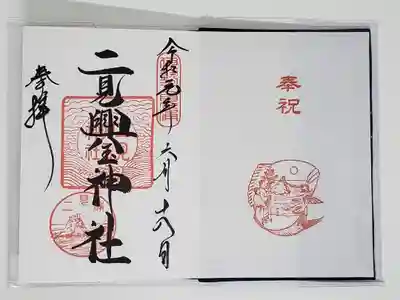 奉祝
令和元年六月十八日
二見興玉神社
奉拝